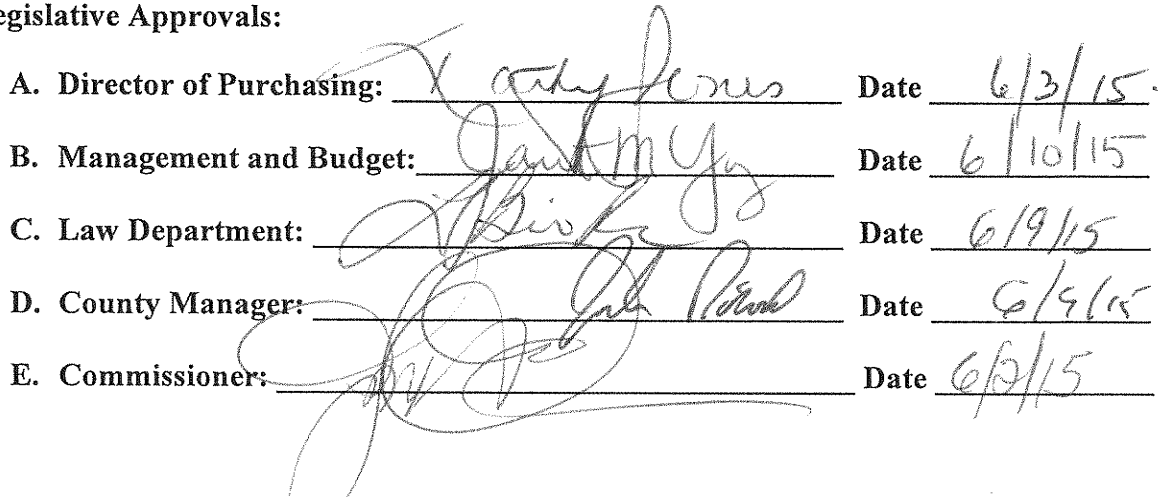 egislative Approvals:
A. Director of Purchasing: Date 6/3/15
B. Management and Budget: Janet M Date 6/10/15
C. Law Department: Date 6/9/15
D. County Manager: Date 6/9/15
E. Commissioner: Date 6/2/15